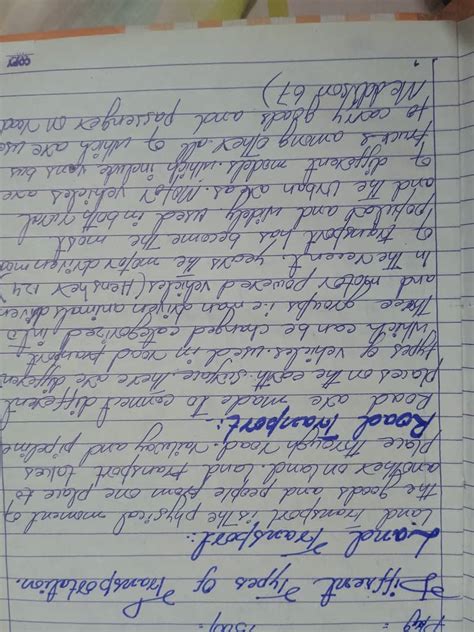 Diffrent Types of Transportation.
Land Transport:-
Land transport is the physical moment of
the goods and people from one place to
another on land. Land transport takes
place through road, railway and pipeline
Road Transport:-
Road are made to connect different
places on the earth surface. there are different
types of vehicles. used in road transport
which can be changed categorized into
three groups i.e. man driven animals driven
and motor powered vehicles (Henshex 124
In the recent years the motor driven mo
of transport has become the most
popular and widely used in both rural
and the urban areas. Motor vehicles are
of different models. which include vans bus
trucks among other all of which are use
to carry goods and passenger on road
Meddison 67)
COPY